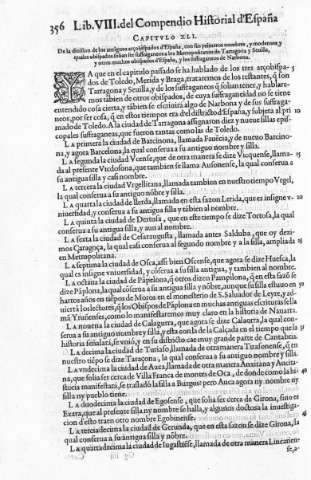 356 Lib. VIII. del Compendio Historial d'España
CAPITVLO XLI.
De la diuision de los antiguos arçobispados d'España, con sus primeros nombres, y modernos, y
quales obispados eran les suffraganeos a las Metropolitanas de Tarragona y Seuilla,
y otros muchos obispados d'España, y los suffraganeos de Narbona.
YA que en el capitulo passado se ha hablado de los tres arçobispa-
dos de Toledo, Merida y Braga, trataremos de los restantes, q̃ son
Tarragona y Seuilla, y de los suffraganeos
mos tābien de otros obispados, de cuya suffraganeidad no se tiene
entendido cosa cierta, y tābien se escriuira algo de Narbona y de sus suffraga-
neos, por ser cosa, q̃ en estos tiempos era del districto d'España, y subjeta al pri
mado de Toledo. A la ciudad de Tarragona assignaron diez y nueue sillas epis-
copales suffraganeas, que fueron tantas como las de Toledo.
LA primera la ciudad de Barcinona, llamada
na, y agora Barcelona, la qual conserua a su antiguo nombre y silla.
LA segunda la ciudad Vcense, que de otra manera se dize Vicquense, llama-
da al presente que tambien se llama Ausonense, la qual conserua a
su antigua silla y casi nombre.
LA tercera la ciudad Vrgellitana, llamada tambien en nuestro tiempo Vrgel,
la qual conserua a su antiguo nōbre y silla.
LA quarta la ciudad de Ilerda, llamada en esta sazon Lerida, que es insigne v-
niuersidad, y conserua a su antigua silla y tābien al nombre.
LA quinta la ciudad de Dertosa, que en este tiempo se dize Tortosa, la qual
conserua a su antigua silla, y aun al nombre.
LA sexta la ciudad de Cesaraugusta, llamada antes Salduba, que oy dezi-
mos Çaragoça, la qual casi conserua al segundo nombre y a la silla, ampliada
en Metropolitana.
LA septima la ciudad de Osca, assi bien Oscense, que agora se dize Huesca, la
qual es insigne vniuersidad, y cōserua a su silla antigua, y tambien al nombre.
LA octaua la ciudad de Pāpilona, q̃ otros dizen Pampilona, q̃ en esta sazō se
dize Pāplona, la qual cōserua a su antigua silla y nōbre, aunque su silla estuuo en
hartos años en tiēpos de Moros en el monasterio de S. Saluador de Leyre, y ad-
uierta los lectores, q̃ los Obispos de Pāplona en muchas antiguas escrituras se lla
mā Yruñenses, como lo manifestaremos muy claro en la historia de Nauarra.
LA nouena la ciudad de Calagurra, que agora se dize Calaorra, la qual con-
serua a su antiguo nōbre y silla, y esta con la de Calçada en el tiempo que la
historia señalará, se vnió, y en su districto cae muy grande parte de Cantabria.
LA decima la ciudad de Turiaso, llamada de otra manera Tirasonense, q̃ en
nuestro tiēpo se dize Taraçona, la qual conserua a su antiguo nombre y silla.
LA vndecima la ciudad de Auca, llamada de otra manera Anxitina y Aucita-
na, que solia ser cerca de Villa Franca de montes de Oca, de donde como la hi-
storia manifestará, se trasladó la silla a Burgos: pero Auca agora ny nombre ny
silla ny pueblo tiene.
LA duodecima la ciudad de Egosense, que solia ser cerca de Girona, sino es
Exara, que al presente silla ny nombre se halla, y algunos doctos la inuestiga-
cion d'esto traen otro nombre Egobinense.
LA terciadecima la ciudad de Gerunda, que en esta sazon se dize Girona, la
qual conserua a su antigua silla y nōbre.
LA quartadecima la ciudad de llamada de otra manera